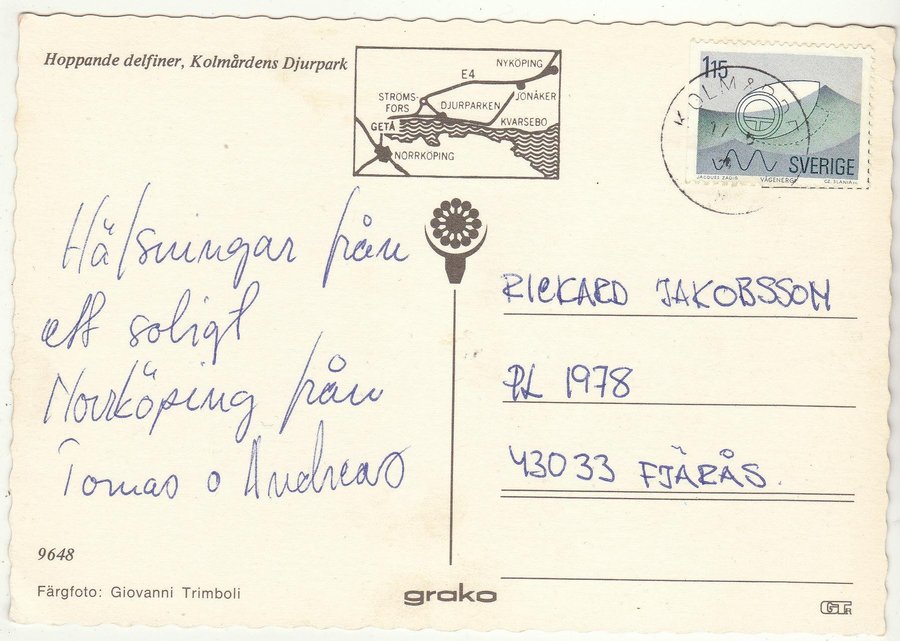 Hoppande delfiner, Kolmårdens Djurpark
NYKÖPING
E4
JONÅKER
STRÖMS-
FORS
DJURPARKEN
KVARSEBO
GETÅ
NORRKÖPING
115
KOLMÅRD
SVERIGE
JACQUES ZADIG VÅGENERGI CZ. SLANIA
Hälsningar från
ett soligt
Norrköping från
Tomas o Andreas
RICKARD JAKOBSSON
PL 1978
43033 FJÄRÅS
9648
Färgfoto: Giovanni Trimboli
grako